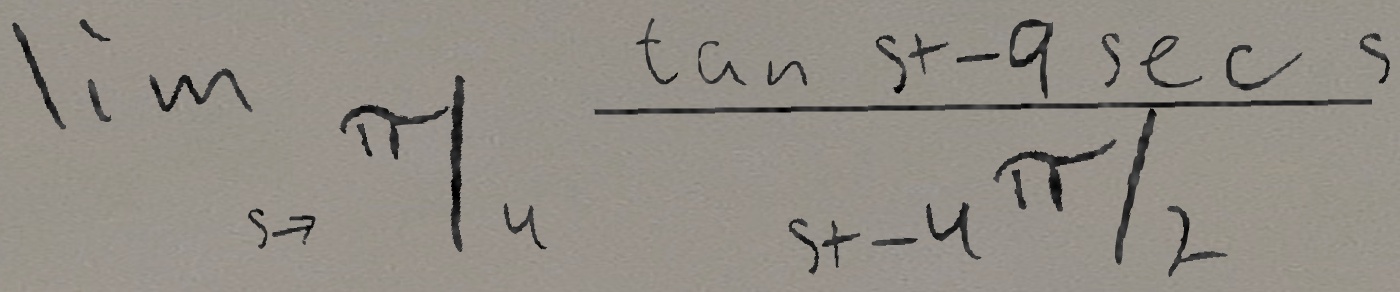 lim s→ π/4 (tan s+-9 sec s)/(s+-4 π/2)